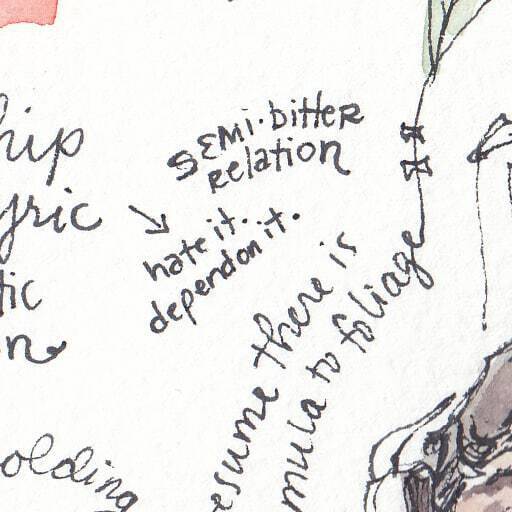 hip
yric
tic
n
SEMI·bitter
Relation
hate it...
depend on it.
esume there is
mula to foliage
olding